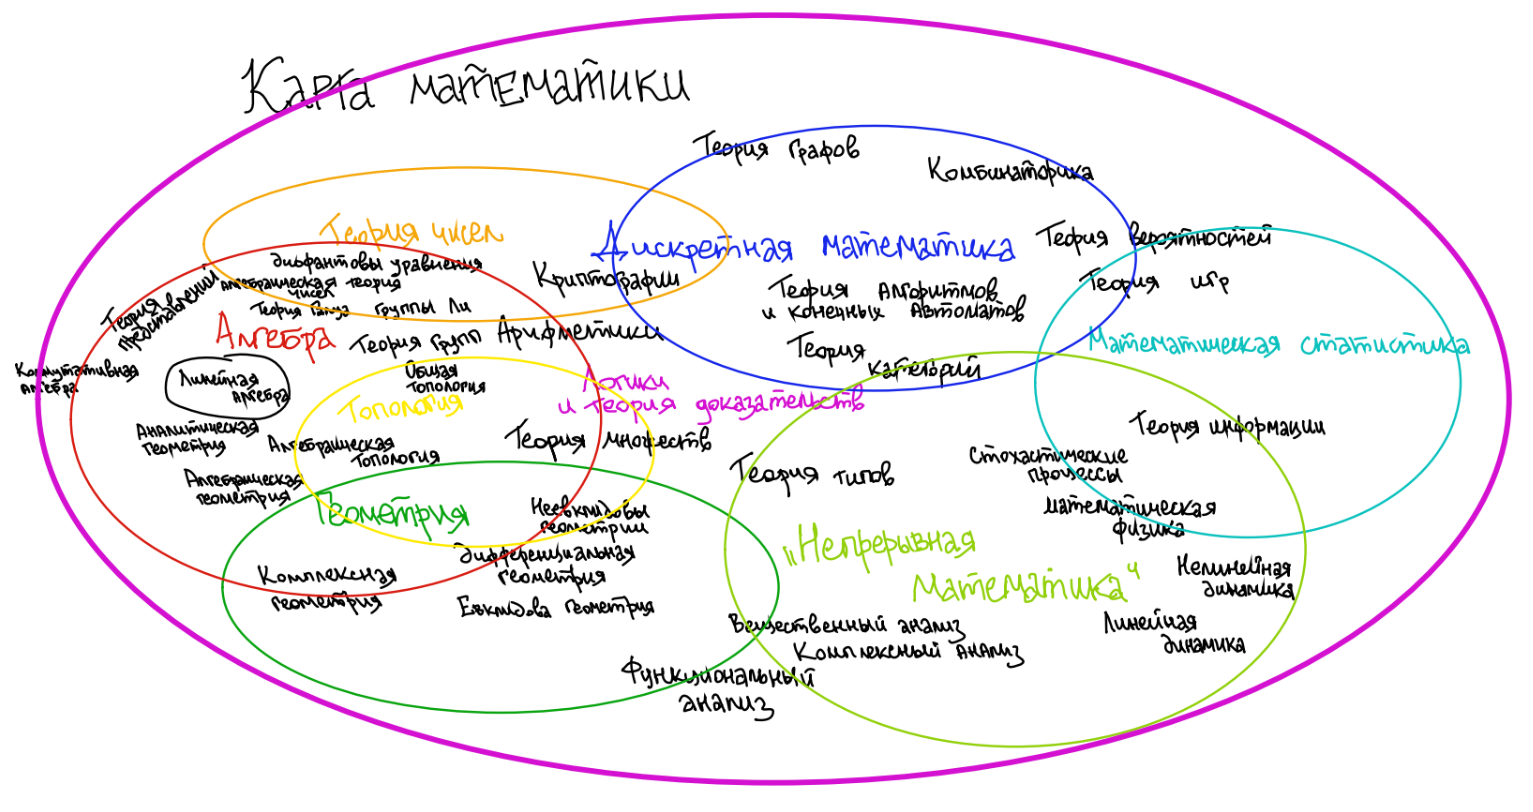 Карта математики
Теория графов
Комбинаторика
Теория чисел
Дискретная математика
Теория вероятностей
Диофантовы уравнения
Алгебраическая теория
чисел
Криптографии
Теория игр
Теория
представлений
Теория Галуа
Группы Ли
Теория Алгоритмов
и конечных Автоматов
Алгебра
Теория Групп
Арифметики
Теория
категорий
Математическая статистика
Коммутативная
алгебра
Линейная
алгебра
Общая
топология
Логики
и теория доказательств
Топология
Аналитическая
геометрия
Алгебраическая
топология
Теория множеств
Теория информации
Алгебраическая
геометрия
Теория типов
Стохастические
процессы
Геометрия
Неевклидовы
геометрии
математическая
физика
Дифференциальная
геометрия
"Непрерывная
Математика"
Комплексная
геометрия
Евклидова геометрия
Нелинейная
динамика
Вещественный анализ
Комплексный анализ
Линейная
динамика
Функциональный
анализ